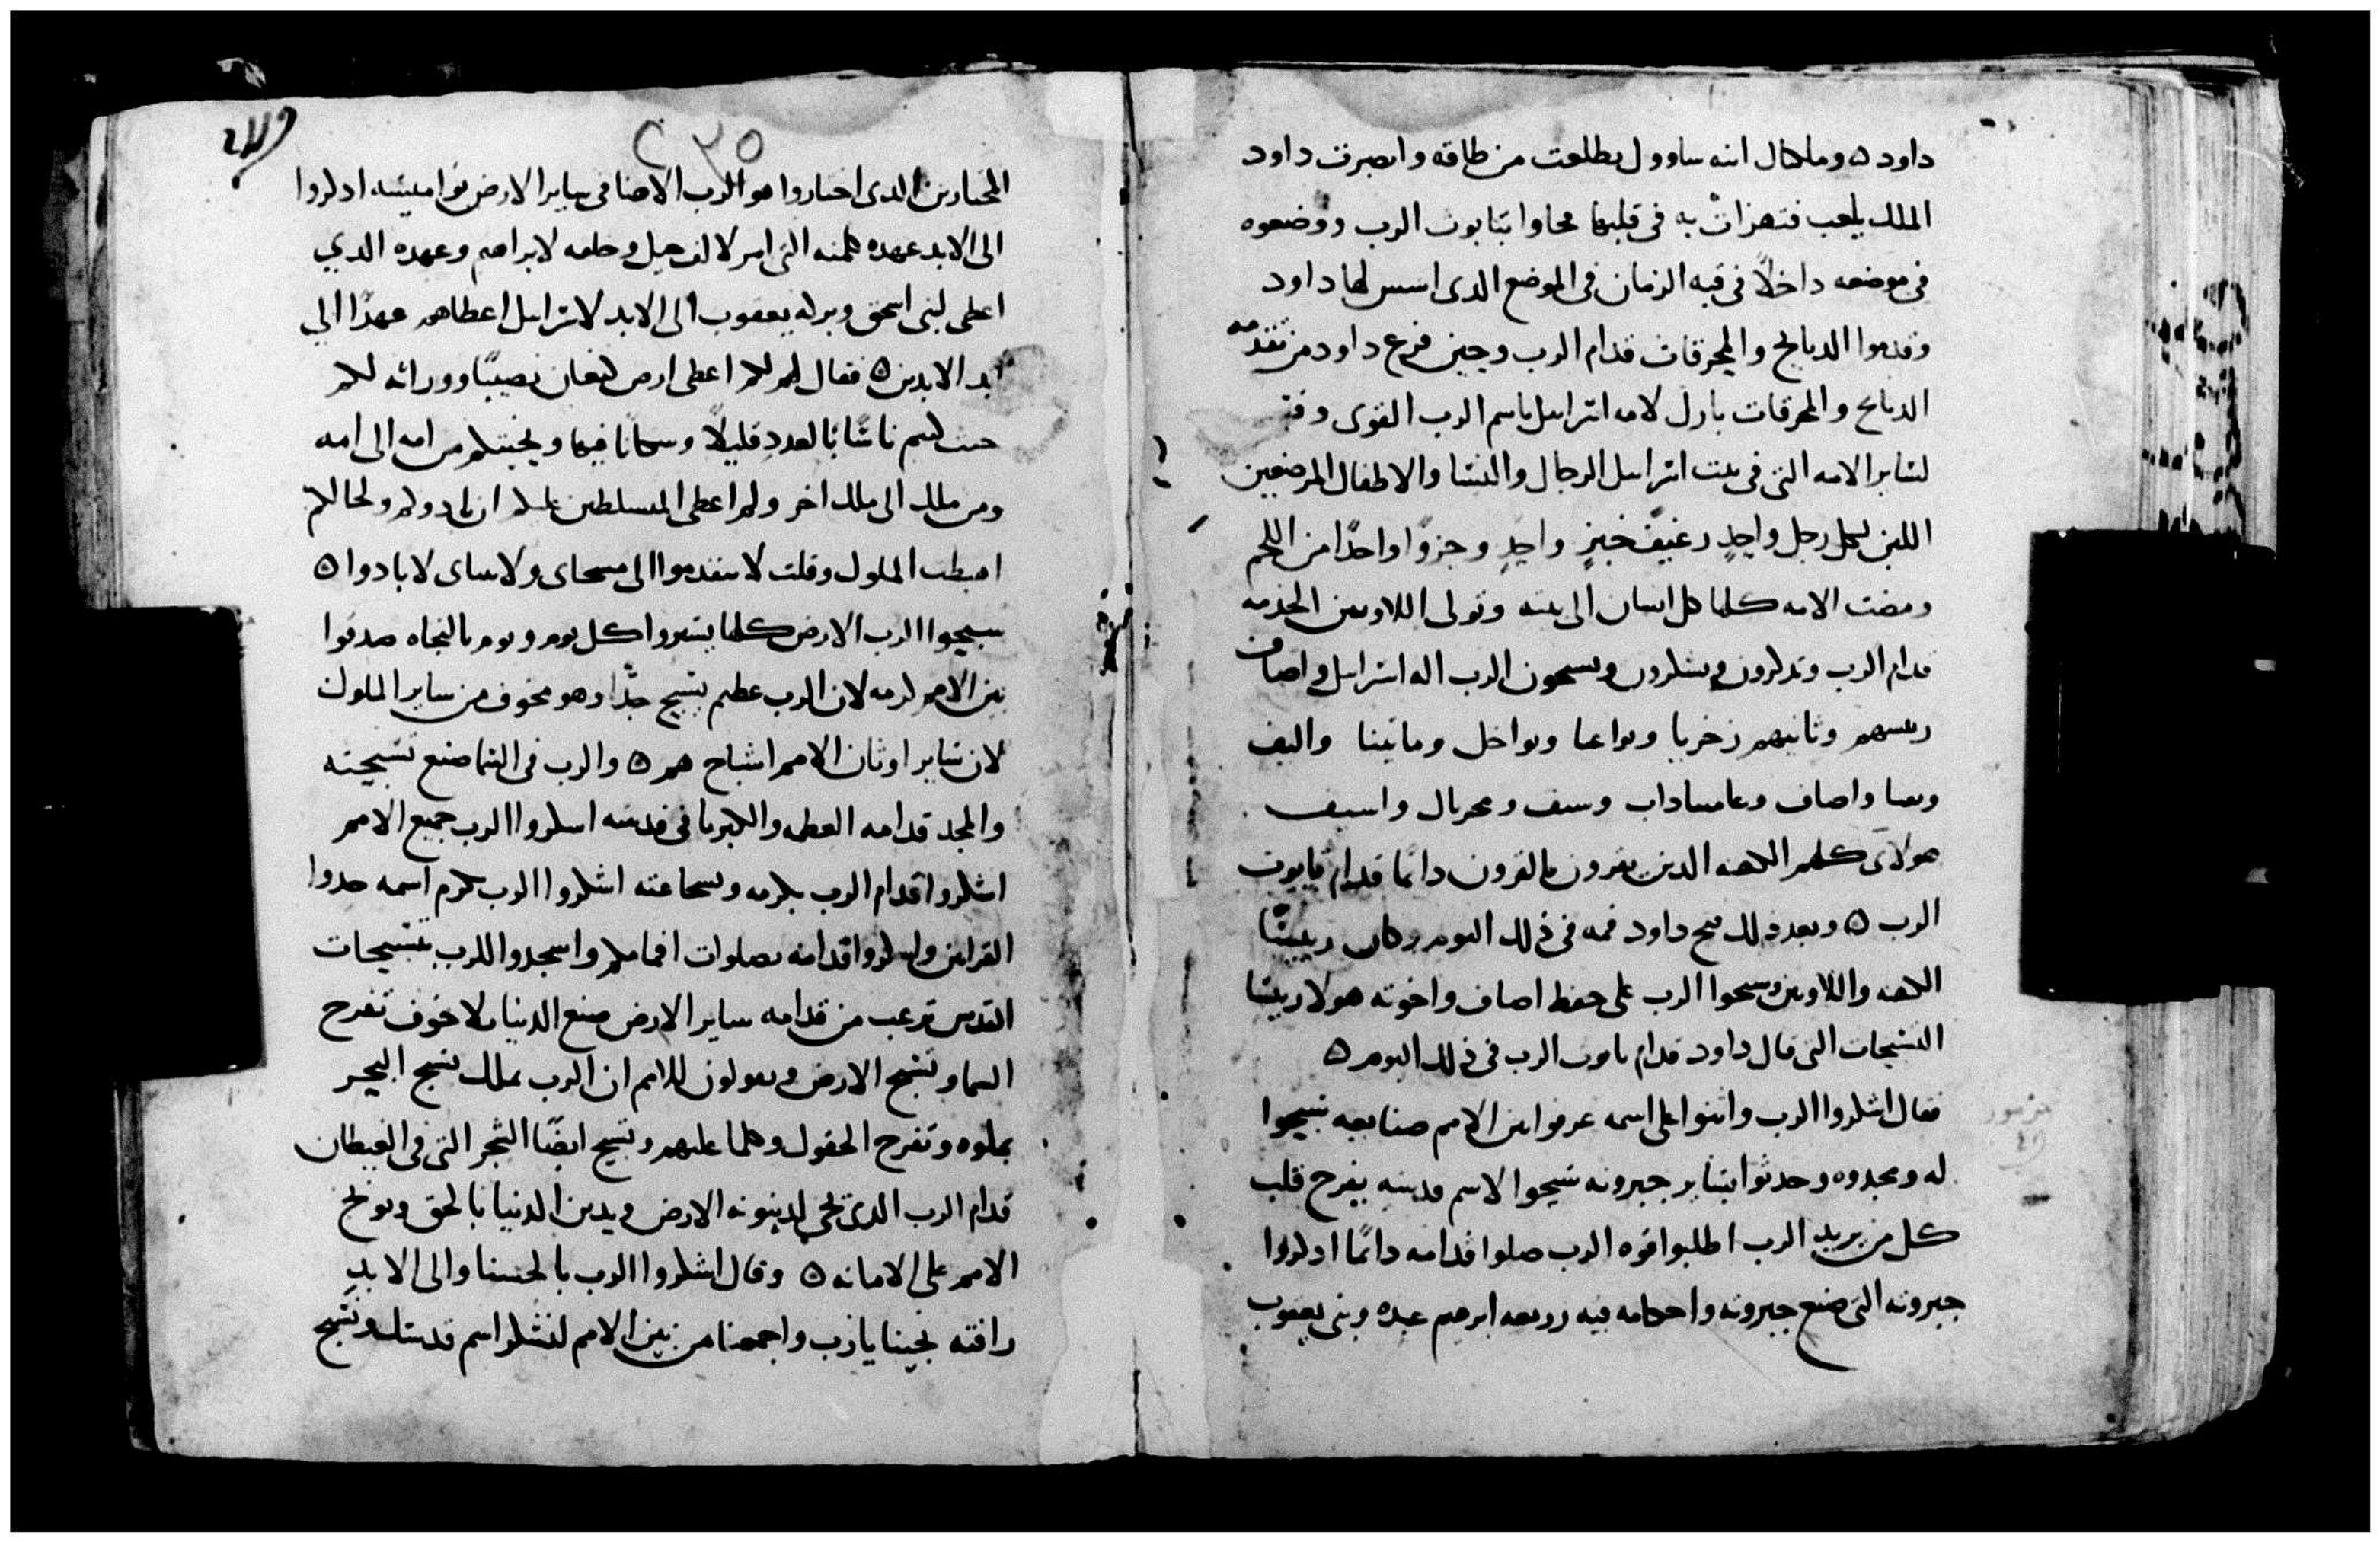 داود ۞ وملكال ابنه ساوول تطلعت من طاقه وابصرت داود
الملك يلعب فتهزات به في قلبها مجاوا بتابوت الرب ووضعوه
في موضعه داخلاً في قبه الزمان في الموضع الدى اسس لها داود
وقدموا الدبايح والمحرقات قدام الرب وحين فرغ داود من تقدمه
الدبايح والمحرقات بارك لامه اسراسل باسم الرب القوى وقـ
لساير الامه التى في بيت اسراسل الرجال والنسا والاطفال المرضعين
اللبن لكل رجل واحدٍ رغيف خبزٍ واحدٍ وجزوًا واحدًا من اللحم
ومضت الامه كلها كل انسان الى بيته وتولى اللاويين الخدمه
قدام الرب وتدكرون ويشكرون ويسبحون الرب اله اسراسل واصاف
ريسهم وثانيهم زخريا وبواعا ويواخل وماتيتا واليف
وبعنا واصاف وعاميناداب وسف ومحربال واسيف
هولاى كلهم الكهنه الدين يقرون بالقرون دايمًا قدام تابوت
الرب ۞ وبعد دلك فتح داود فمه في ذلك اليوم وكان رييسًا
الكهنه واللاويين وسبحوا الرب على حفظ اصاف واخوته هولا رييسا
التسبحات التى قال داود قدام تابوت الرب في ذلك اليوم ۞
فقال اشكروا الرب واثنوا على اسمه عرفوا بين الامم صنايعه سبحوا
له ومجدوه وحدثوا بساير جبرونه سبحوا لاسم قدسه يفرح قلب
كل من يريد الرب اطلبوا قوه الرب صلوا قدامه دايمًا ادكروا
جبرونه التى صنع جبرونه واحكامه فيه زريعه ابرهيم عبده وبنى يعقوب
٢٣٥
المختارين الدى اختاروا هو الرب الاهنا في ساير الارض نواميسه ادكروا
الى الابد عهده كلمته التى امر لالف جيل وحلفه لابراهيم وعهده الدي
اعطى لبنى اسحق وبركه يعقوب الى الابد لاسراسل اعطاهم عهدًا الي
ابد الابدين ۞ فقال لهم لكم اعطى ارض كنعان نصيبًا ووراثه لكم
حيث كنتم ناسًا بالعدد قليلاً وسكانًا فيها ونجيتكم من امه الى امه
ومن ملك الى ملك اخر ولم اعطى المسلطين عليكم ان يادوكم ولحالكم
اضبطت الملوك وقلت لا تتقدموا الى مسحاى ولانبياى لا بادوا ۞
سبحوا الرب الارض كلها بشروا كل يوم ويوم بالنجاه صدقوا
بين الامم كرمه لان الرب عظيم يسبح جدًا وهو مخوف من ساير الملوك
لان ساير اوثان الامم اشباح هم ۞ والرب في السما صنع تسبحته
والمجد قدامه العظمه والكبريا في قدسه اشكروا الرب جميع الامم
اشكروا قدام الرب بكرمه وشجاعته اشكروا الرب بكرم اسمه خدوا
القرابين واشكروا قدامه بصلوات افمامكم واسجدوا للرب بتسبيحات
القدس ترعب من قدامه ساير الارض صنع الدنيا بلا خوف تفرح
السما وتسبح الارض ويقولون للامم ان الرب يملك تسبح البحر
بملوه وتفرح الحقول وكلما عليهم وتسبح ايضًا الشجر التى في الغيطان
قدام الرب الذى يجي لدينونه الارض ويدين الدنيا بالحق ويوبخ
الامم على الامانه ۞ وقال اشكروا الرب بالحسنا والى الابدِ
رافته نجينا يا رب واجمعنا من بين الامم لنشكر اسم قدسك ونسبح